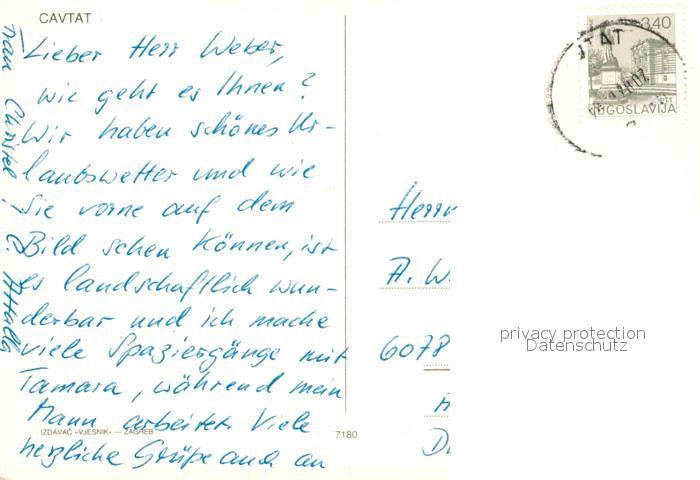 CAVTAT
Lieber Herr Weber,
wie geht es Ihnen?
Wir haben schönes Ur-
laubswetter und wie
Sie vorne auf dem
Bild sehen können, ist
es landschaftlich wun-
derbar und ich mache
viele Spaziergänge mit
Tamara, während mein
Mann arbeitet. Viele
herzliche Grüße auch an
Frau Christel!
IZDAVAČ «VJESNIK» — ZAGREB
7180
3,40
JUGOSLAVIJA
TAT
Herrn
A. W
6078
privacy protection
Datenschutz